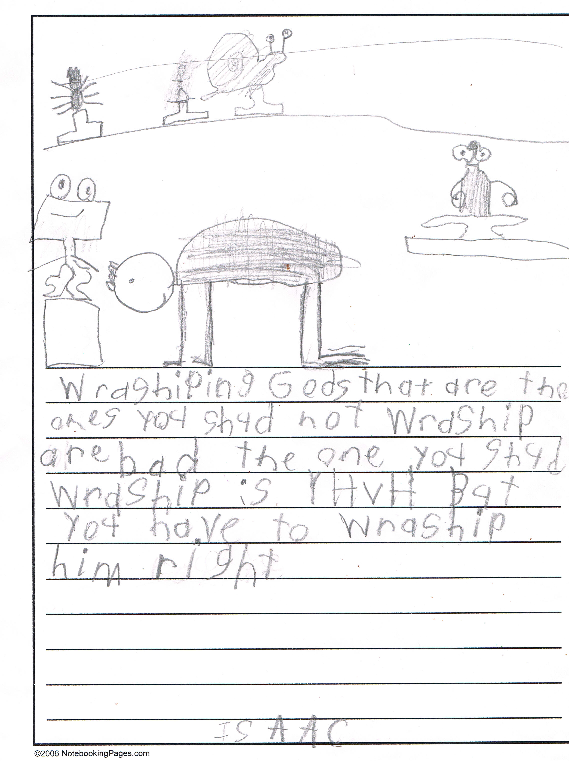 Wraghiping Gods that are the
ones you shud not Wrdship
are bad the one you shud
Wrdship is YHVH But
you have to wraship
him right
ISAAC
©2006 NotebookingPages.com